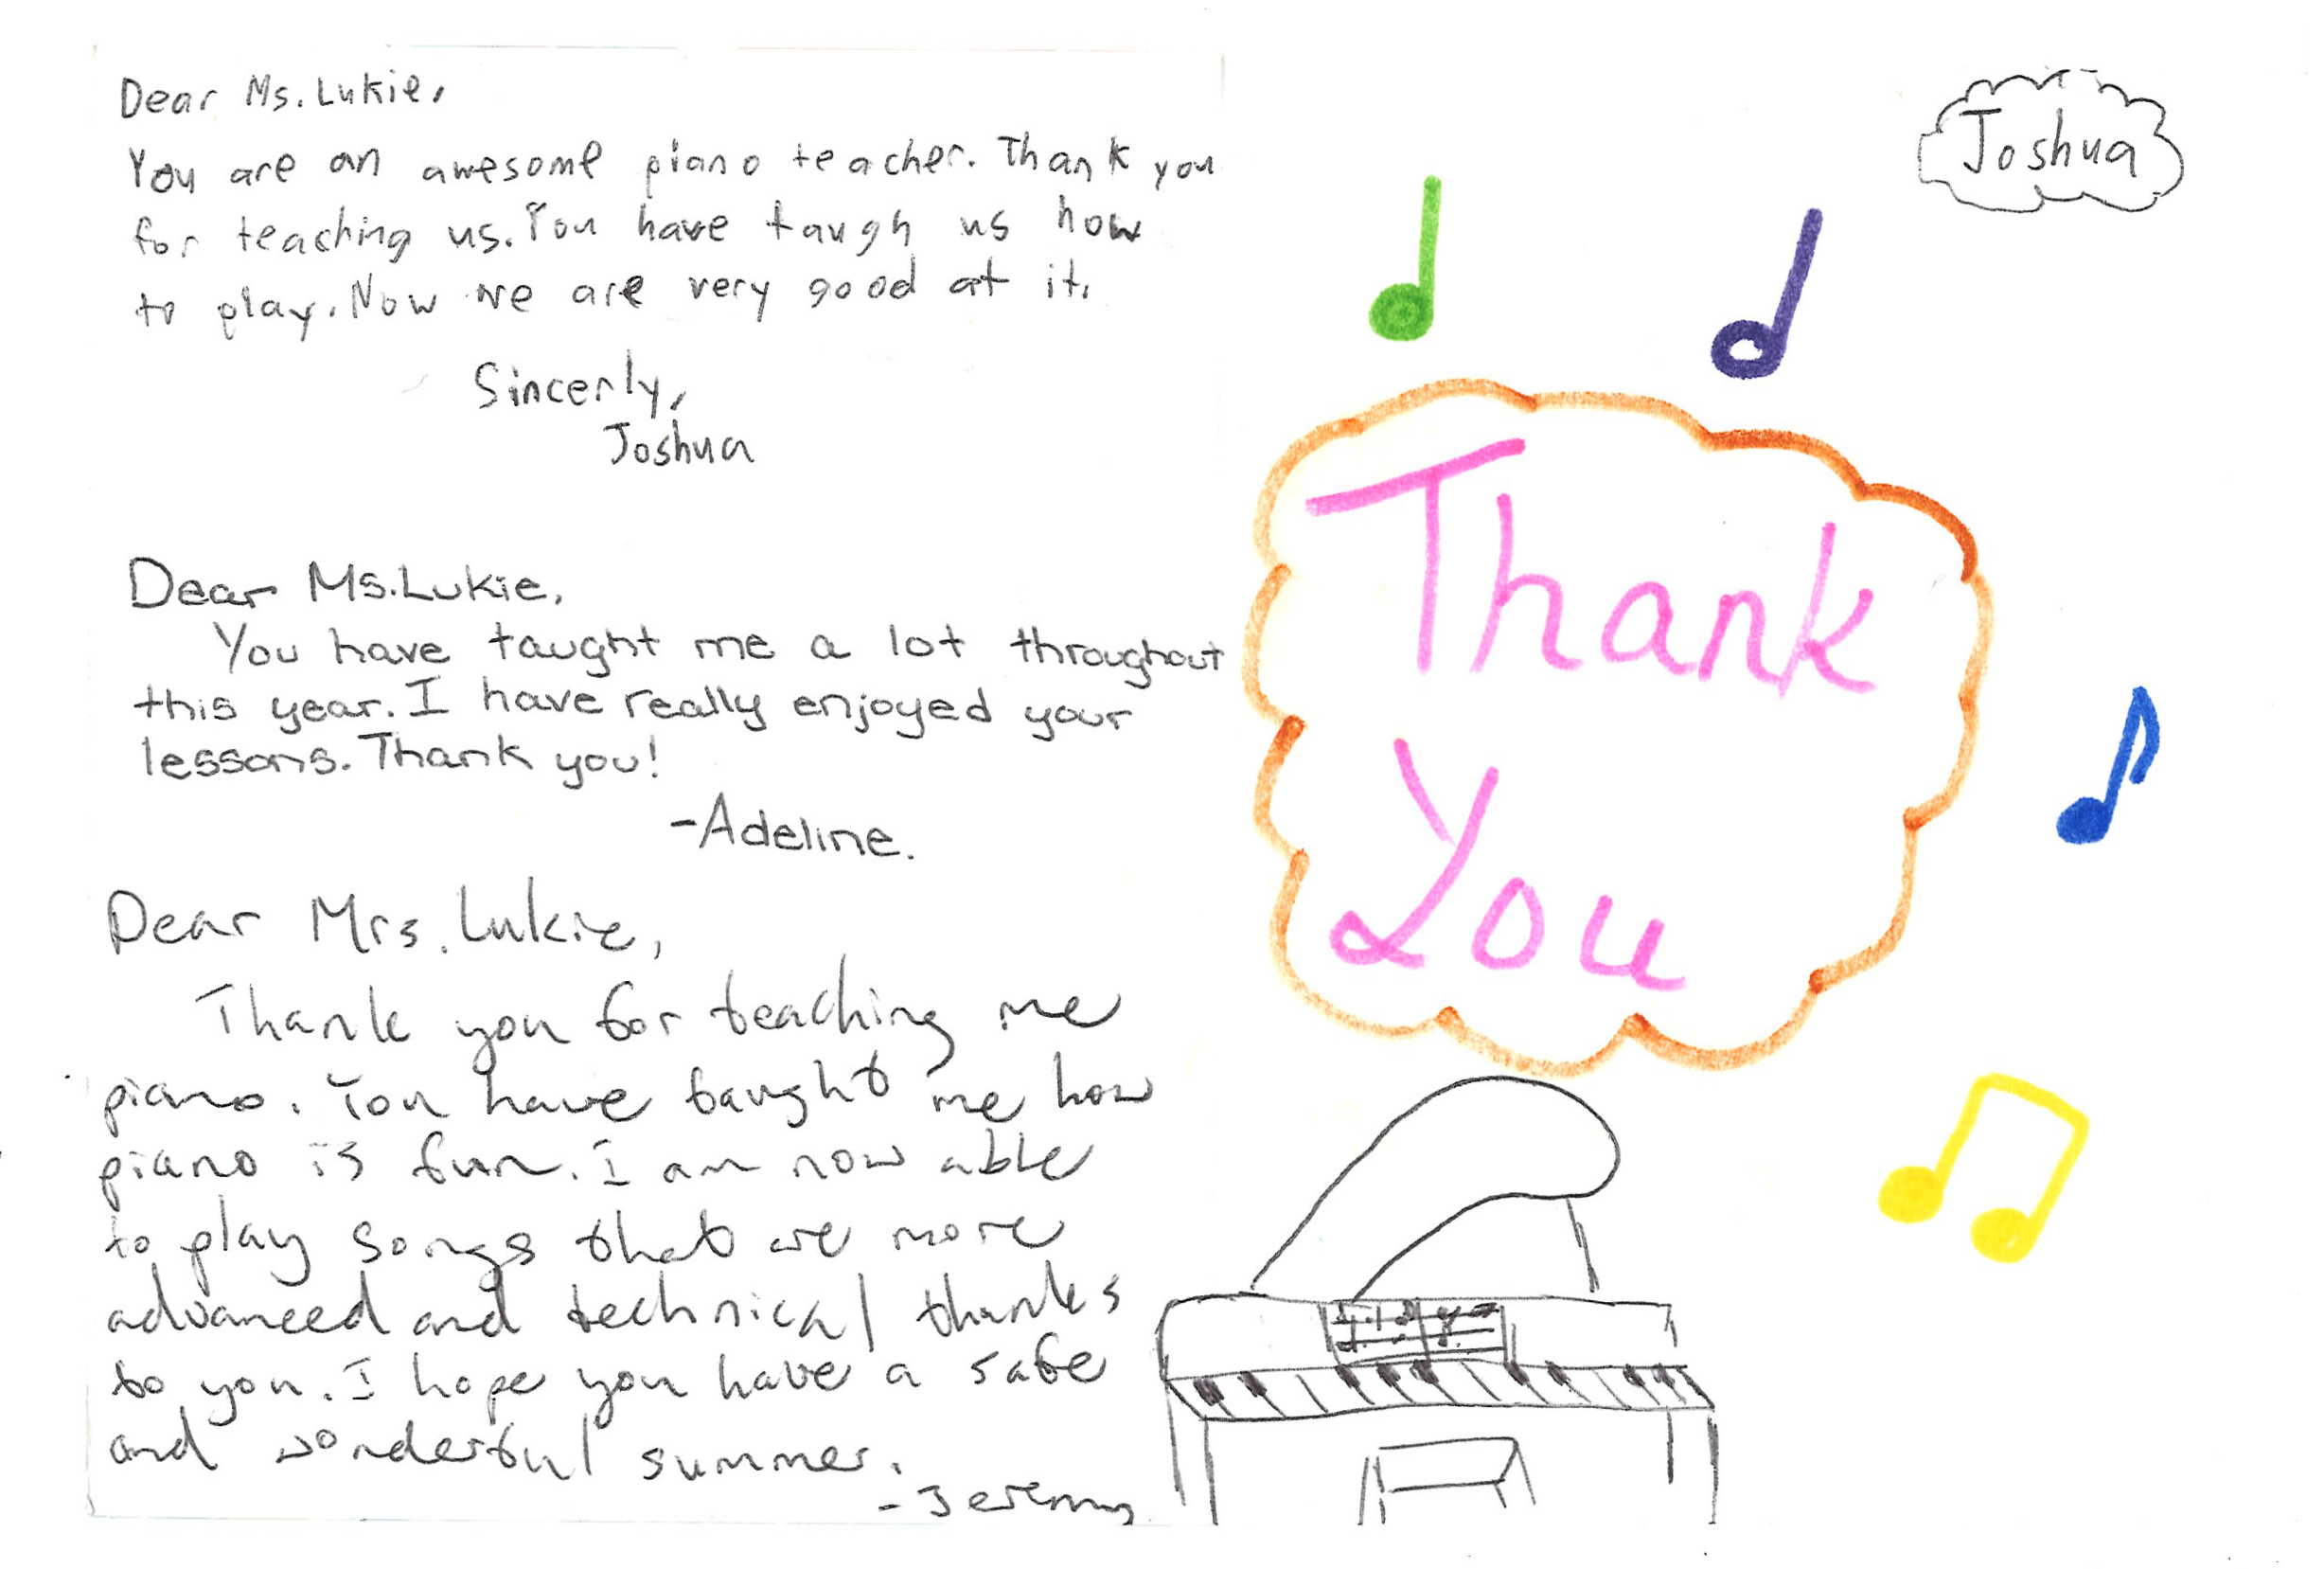 Dear Ms. Lukie,
You are an awesome piano teacher. Thank you
for teaching us. You have taugh us how
to play. Now we are very good at it.
Sincerly,
Joshua
Dear Ms. Lukie,
You have taught me a lot throughout
this year. I have really enjoyed your
lessons. Thank you!
-Adeline.
Dear Mrs. Lukie,
Thank you for teaching me
piano. You have taught me how
piano is fun. I am now able
to play songs that are more
advanced and technical thanks
to you. I hope you have a safe
and wonderful summer.
- Jeremy
Joshua
Thank
You